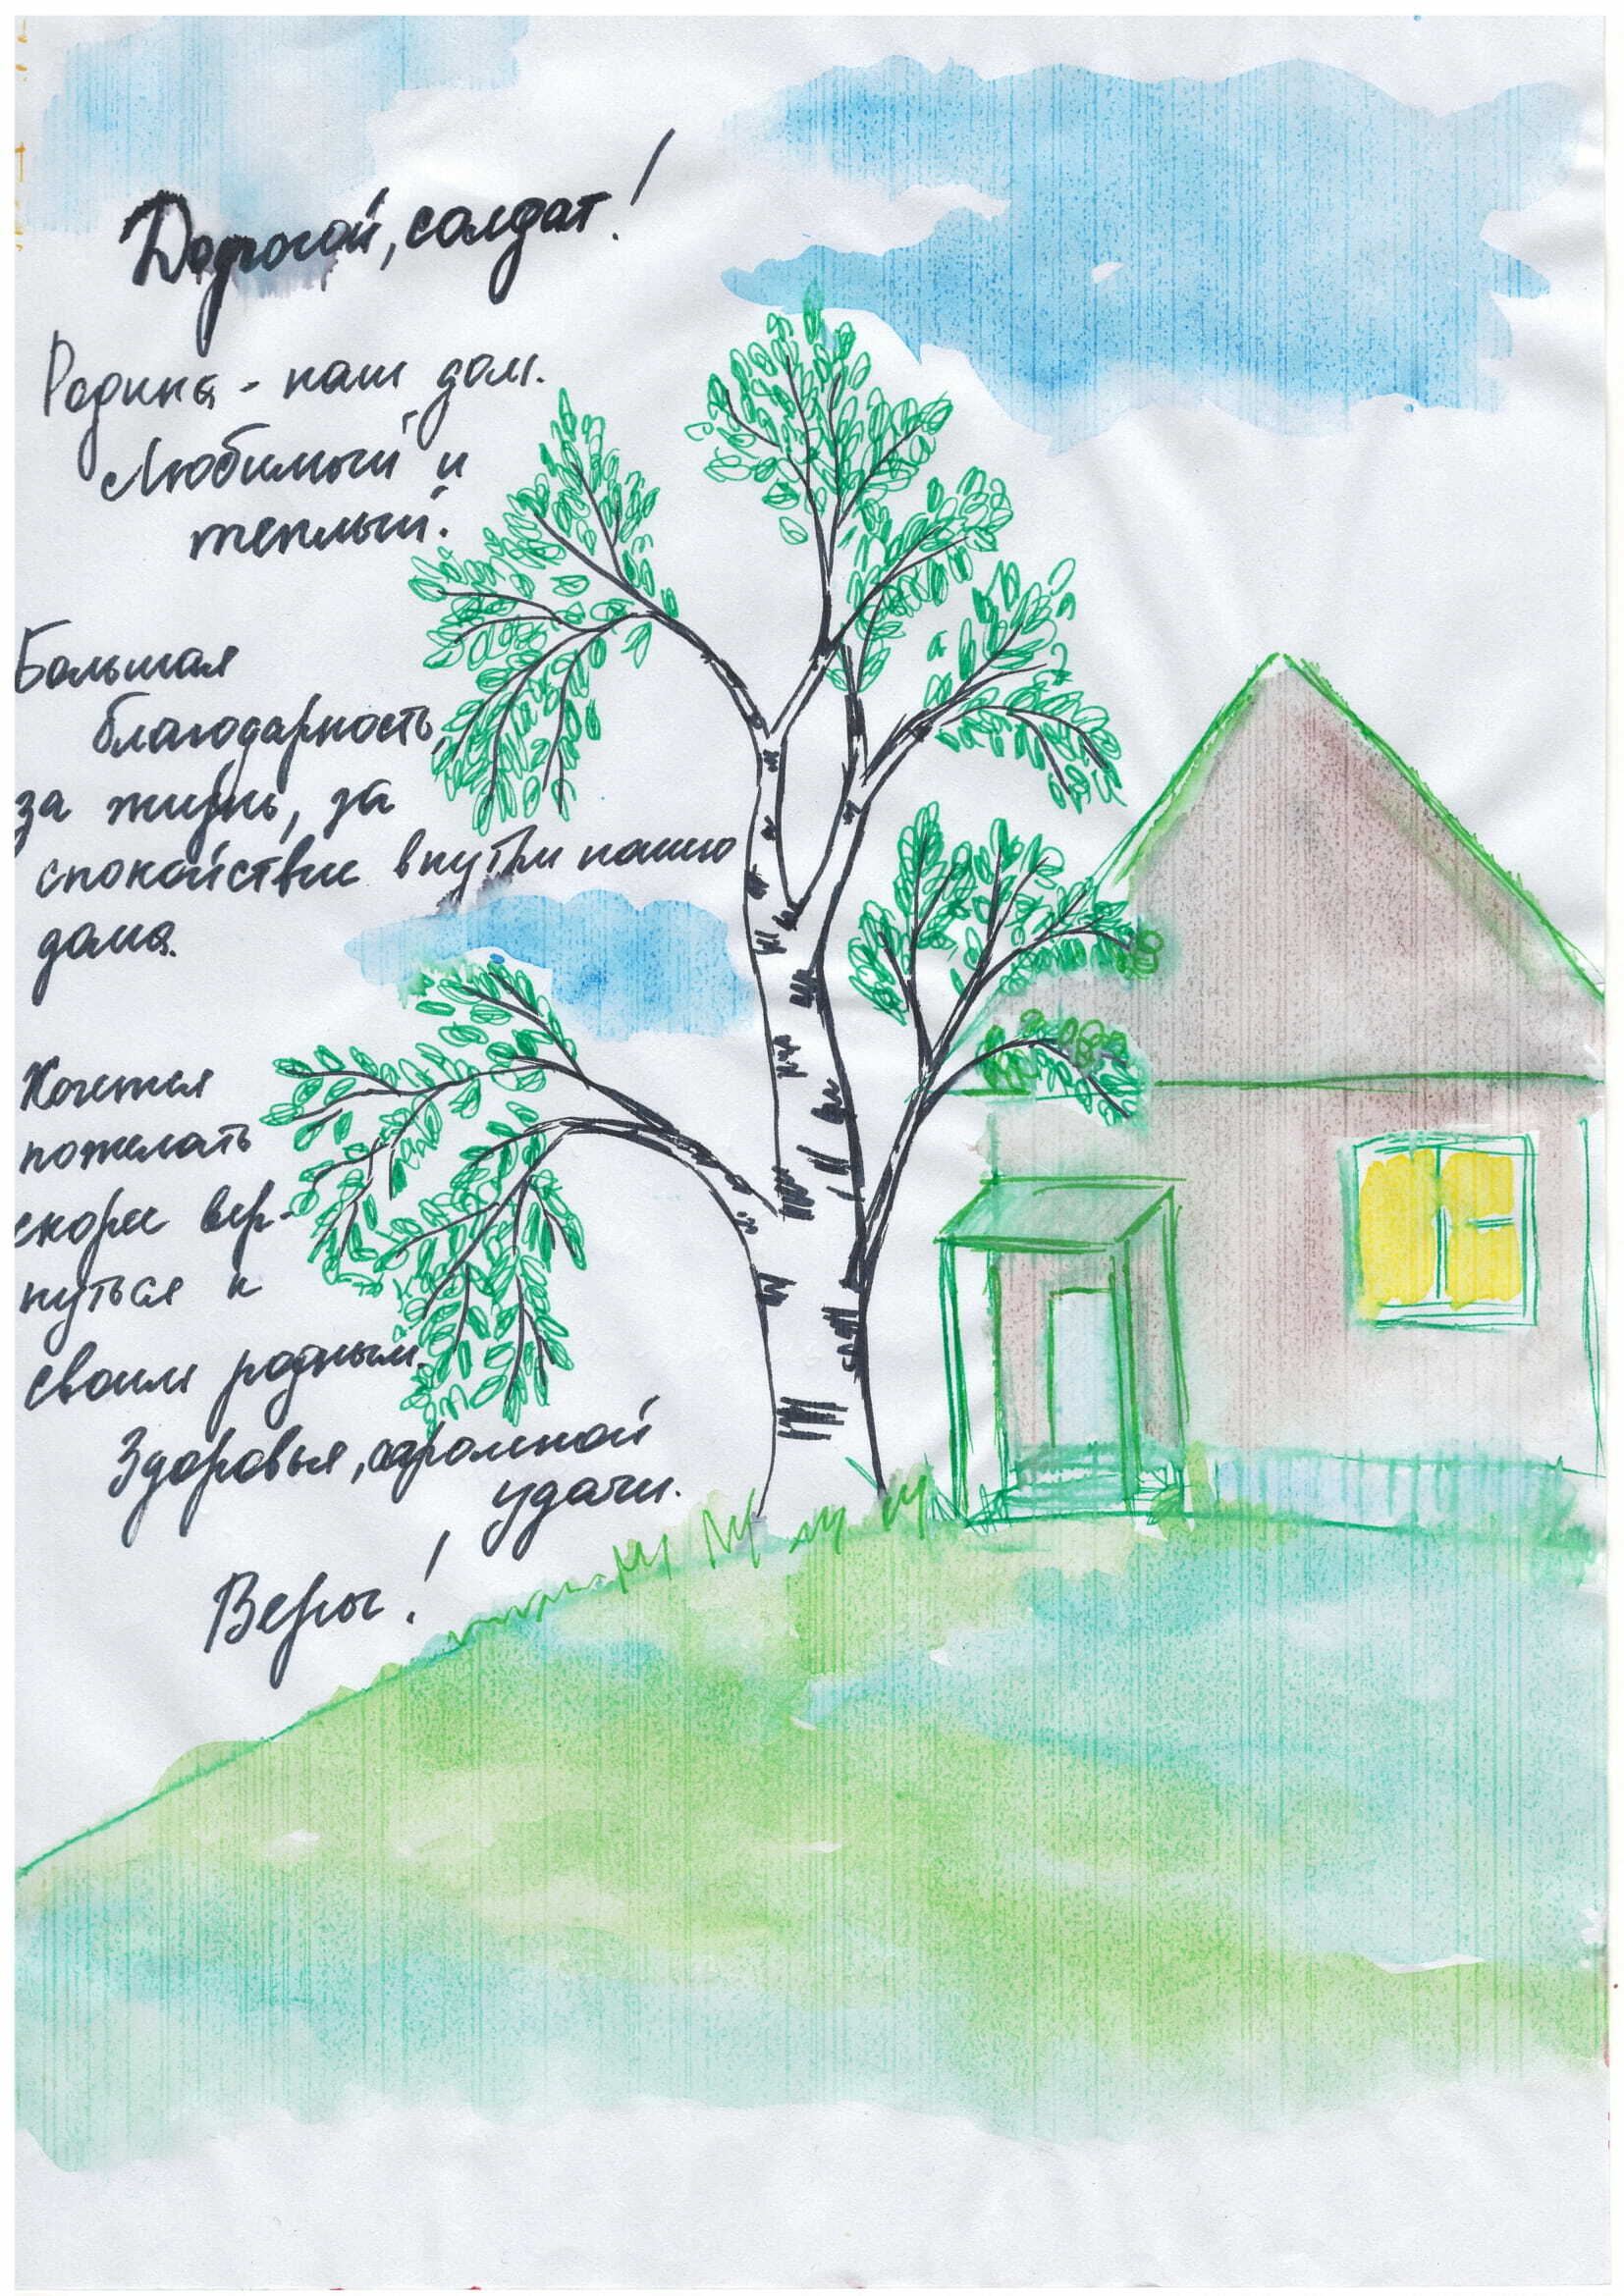 Дорогой, солдат!
Родина - наш дом.
Любимый и
теплый.
Большая
благодарность,
за жизнь, за
спокойствие внутри нашего
дома.
Хочется
пожелать
скорее вер-
нуться к
своим родным.
Здоровья, огромной
удачи.
Веры!